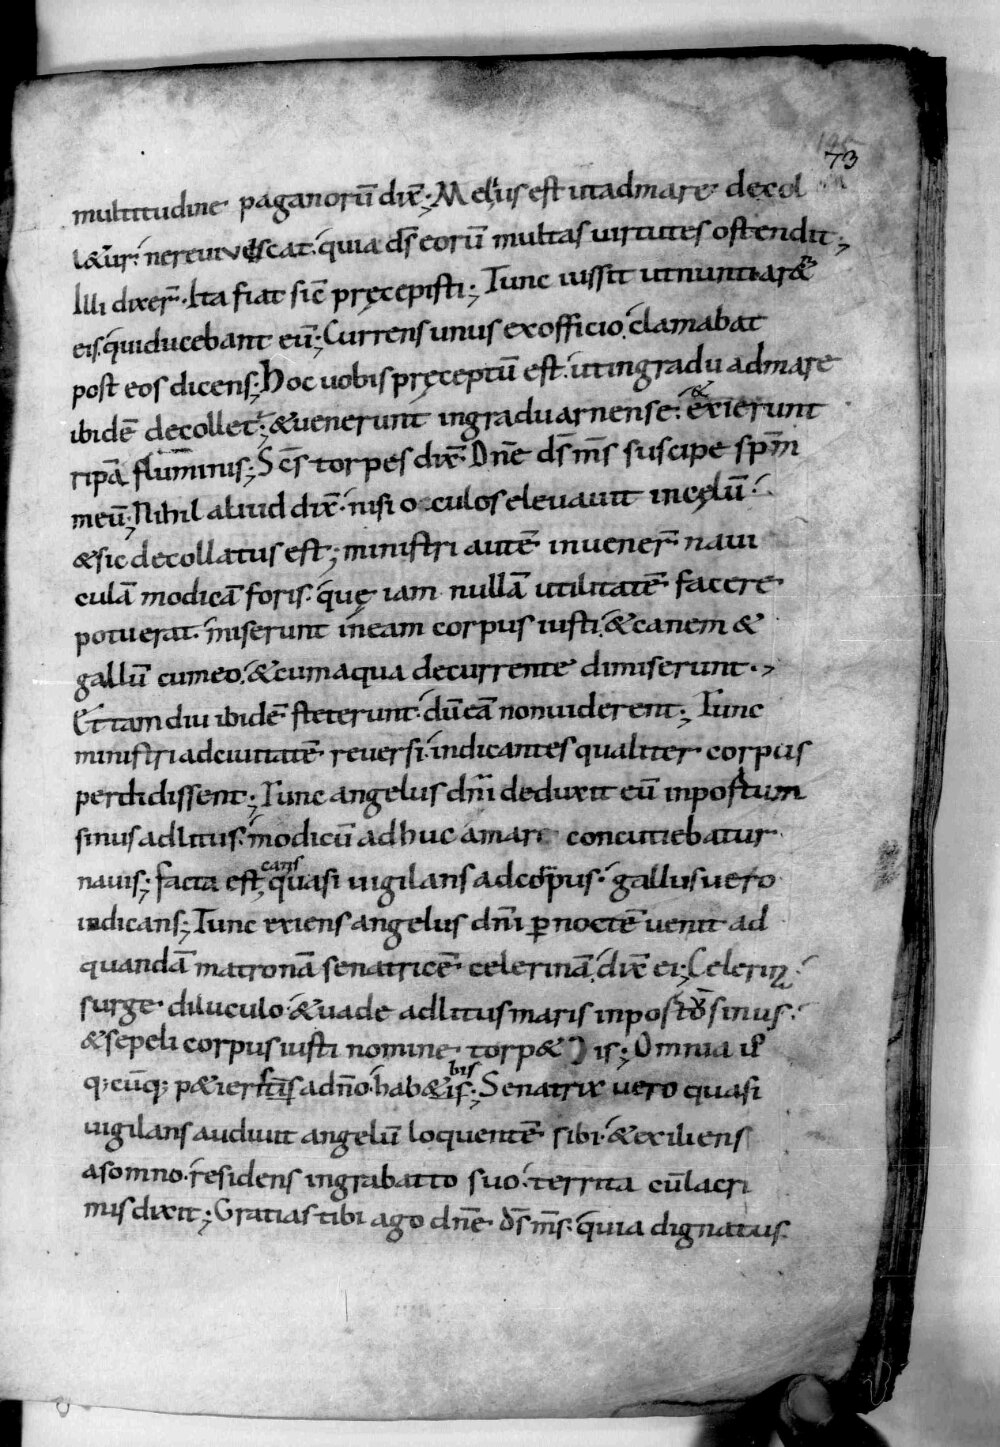 73
multitudine paganorū dix̄; Melius est ut ad mare decol
l&ur. ne reuiuescat. quia d̄s eorū multas uirtutes ostendit;
Illi dixer̄. Ita fiat sic̄ pręcepisti; Tunc iussit ut nuntiar&
eis. qui ducebant eū; Currens unus ex officio. clamabat
post eos dicens; Hoc uobis pręceptū est. ut in gradu ad mare
ibidē decollet̄; & uenerunt in gradu arnense. & exierunt
ripā fluminis; Sc̄s torpes dix̄. Dn̄e d̄s m̄s suscipe sp̄m
meū; Nihil aliud dix̄. nisi oculos eleuauit in cęlū.
& sic decollatus est; ministri autē inuener̄ naui
culā modicā foris. quę iam nullā utilitatē facere
potuerat. miserunt in eam corpus iusti. & canem &
gallū cum eo. & cum aqua decurrente dimiserunt.
Et tam diu ibidē steterunt. dū eā non uiderent; Tunc
ministri ad ciuitatē reuersi. indicantes qualiter corpus
perdidissent; Tunc angelus dn̄i deduxit eū in postum
sinus ad litus. modicū adhuc a mari concutiebatur
nauis; facta est, canis quasi uigilans ad corpus. gallus uero
indicans; Tunc exiens angelus dn̄i ꝑ noctē uenit ad
quandā matronā senatricē celerinā. dix̄ ei; Celerina
surge diluculo. & uade ad litus maris in posto sinus.
& sepeli corpus iusti nomine torp&is; Omnia u
q; cūq; p&ier ad dn̄o. hab&bis; Senatrix uero quasi
uigilans audiuit angelū loquentē sibi. & exiliens
a somno. residens in grabatto suo. territa cū lacri
mis dixit; Gratias tibi ago dn̄e d̄s m̄s. quia dignatus